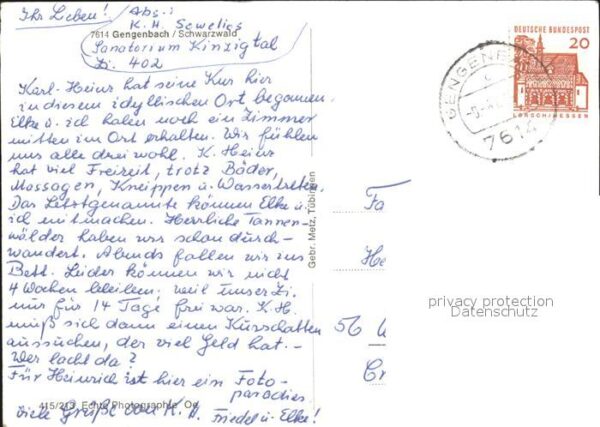 Ihr Lieben! Abs.:
K. H. Sowelies
7614 Gengenbach / Schwarzwald
Sanatorium Kinzigtal
Zi. 402
Karl-Heinz hat seine Kur hier
in diesem idyllischen Ort begonnen.
Elke u. ich haben noch ein Zimmer
mitten im Ort erhalten. Wir fühlen
uns alle drei wohl. K. Heinz
hat viel Freizeit, trotz Bäder,
Massagen, Kneippen u. Wassertreten.
Das Letztgenannte können Elke u.
ich mitmachen. Herrliche Tannen-
wälder haben wir schon durch-
wandert. Abends fallen wir ins
Bett. Leider können wir nicht
4 Wochen bleiben. weil unser Zi.
nur für 14 Tage frei war. K. H.
muß sich dann einen Kurschatten
aussuchen, der viel Geld hat. -
Wer lacht da?
Für Heinrich ist hier ein Foto-
paradies
415/213 Echte Photographie
viele Grüße von K. H. Friedel u. Elke!
Gebr. Metz, Tübingen
DEUTSCHE BUNDESPOST
20
LORSCH/HESSEN
GENGENB
7614
Fa
He
56
privacy protection
Datenschutz